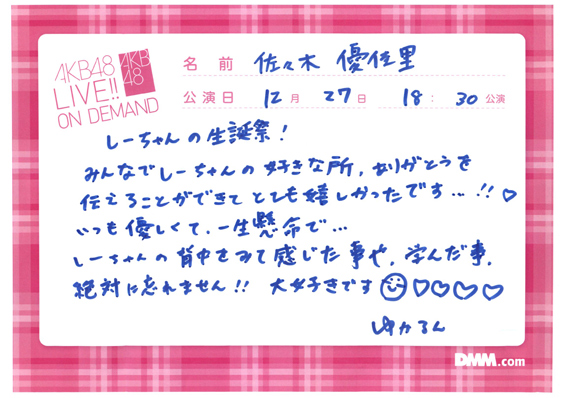 AKB48
LIVE!!
ON DEMAND
AKB
48
名前 佐々木 優佳里
公演日 12月 27日 18:30公演
しーちゃんの生誕祭!
みんなでしーちゃんの好きな所,ありがとうを
伝えることができてとても嬉しかったです…!!♡
いつも優しくて、一生懸命で…
しーちゃんの背中をみて感じた事や、学んだ事、
絶対に忘れません!! 大好きです☺♡♡♡♡
ゆかるん
DMM.com